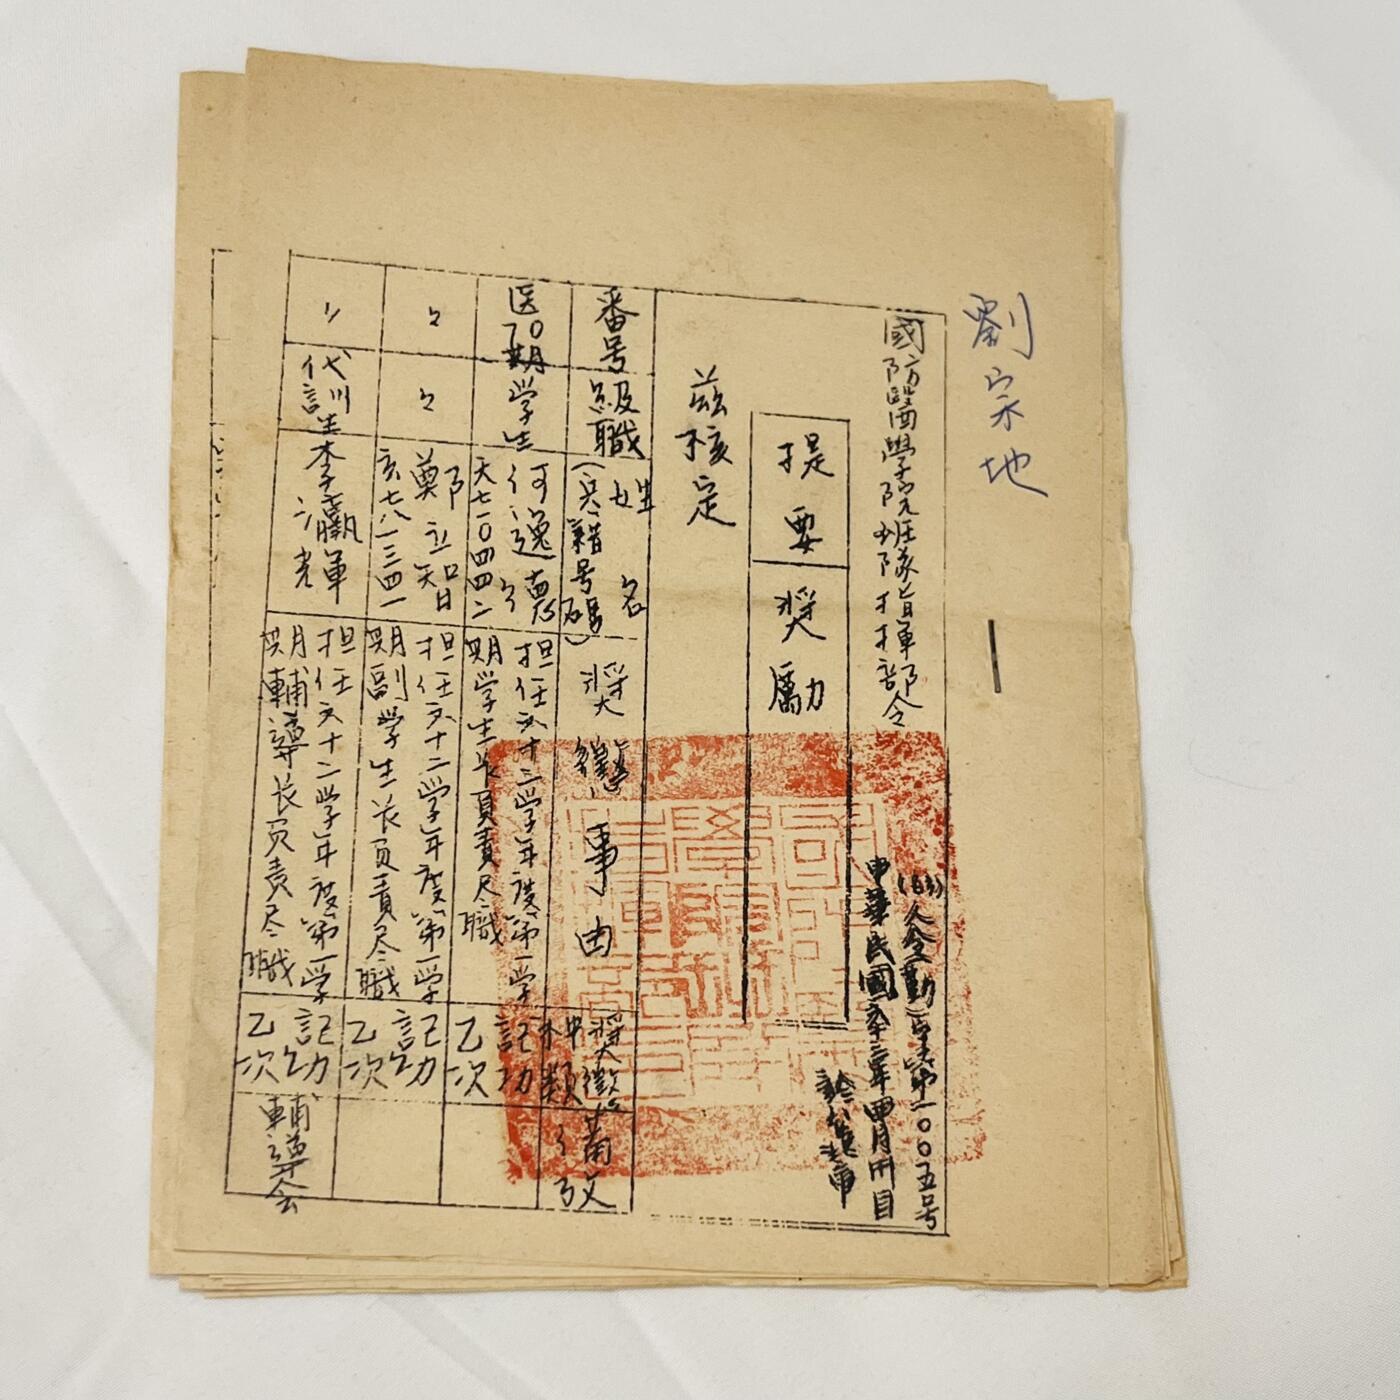 劉宗地
國防醫學院班隊指揮部令
(63)人令(勤)字第一〇〇五号
中華民國六十三年四月卅日
於台北市
提要
獎勵
茲核定
番号
級職
姓名
(兵籍号碼)
獎懲事由
獎懲種類
備攷
医70期
学生
何逸僊
天七一〇四四二
担任六十二学年度第一学
期学生长負責尽職
記功
乙次
〃
〃
鄭立智
玄七八一三四一
担任六十二学年度第一学
期副学生长負責尽職
記功
乙次
〃
代訓生
李瀛光
軍
担任六十二学年度第一学
期輔導长負責尽職
記功
乙次
輔導会